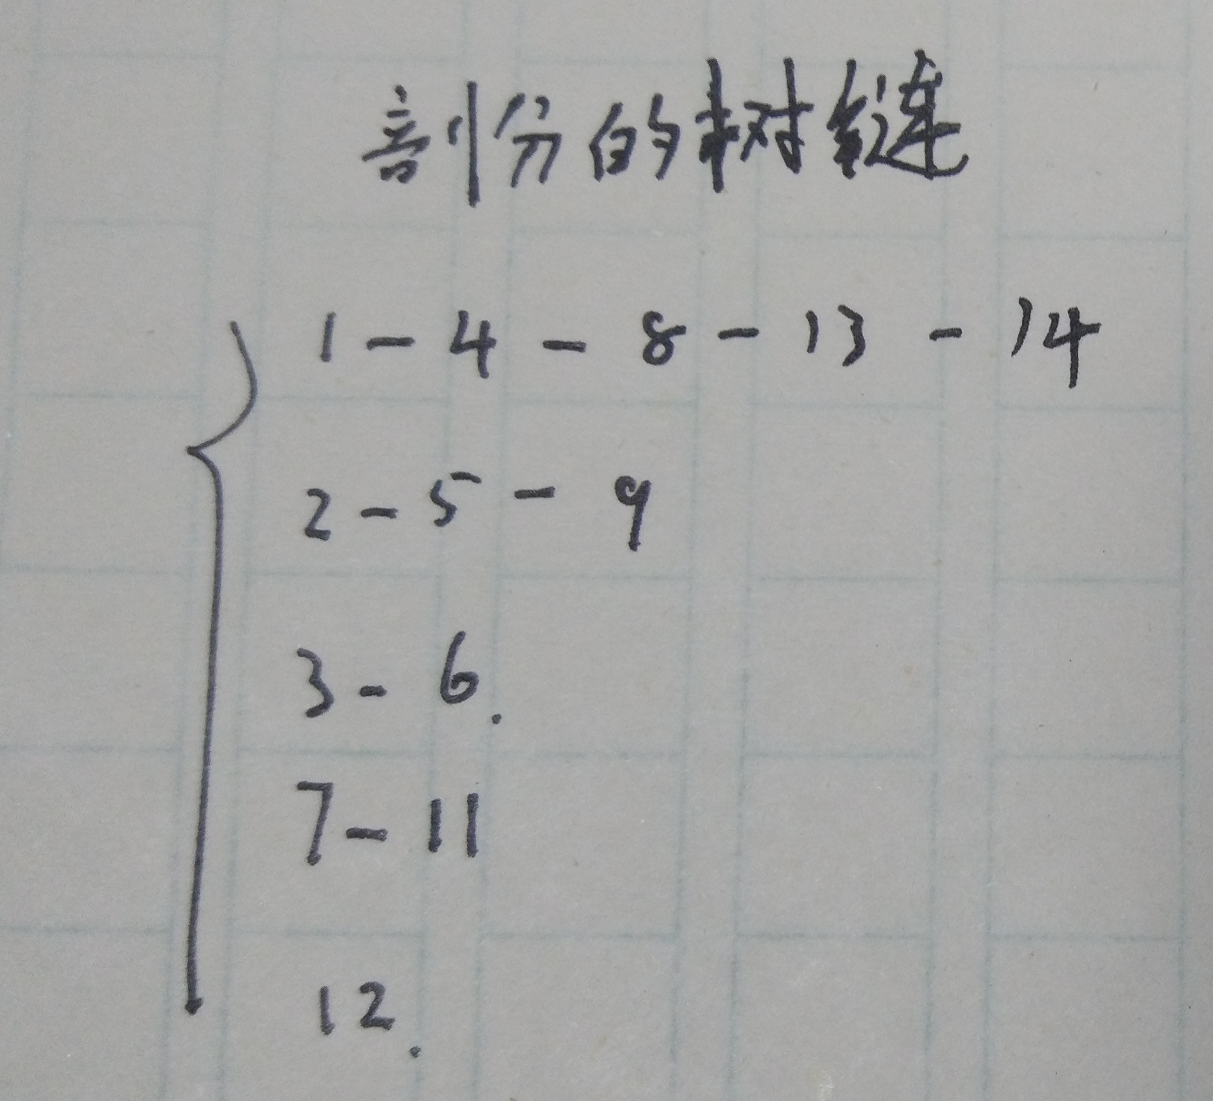 剖份的树链
1-4-8-13-14
2-5-9
3-6.
7-11
12.